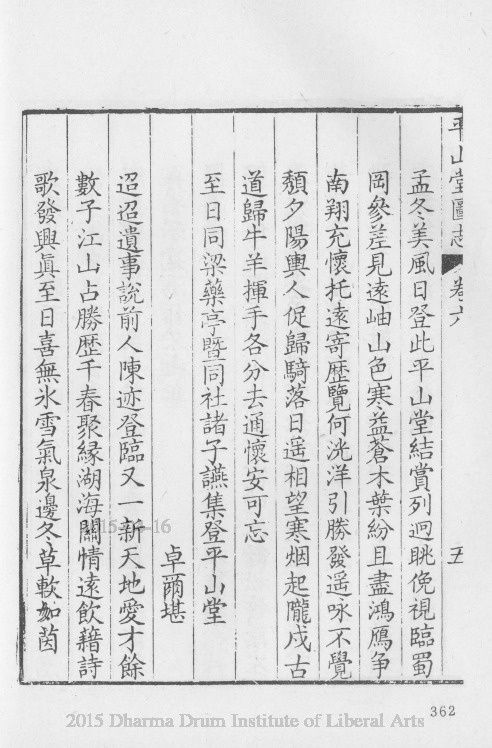 平山堂圖志 卷六 五
孟冬美風日登此平山堂結賞列迥眺俛視臨蜀
岡參差見遠岫山色寒益蒼木葉紛且盡鴻鴈争
南翔充懷托遠寄歷覽何洸洋引勝發遥咏不覺
頽夕陽輿人促歸騎落日遥相望寒烟起隴戍古
道歸牛羊揮手各分去通懷安可忘
至日同梁藥亭暨同社諸子讌集登平山堂
卓爾堪
迢迢遺事說前人陳迹登臨又一新天地愛才餘
數子江山占勝歷千春聚緣湖海關情遠飲藉詩
歌發興眞至日喜無氷雪氣泉邊冬草軟如茵
362
2015 Dharma Drum Institute of Liberal Arts